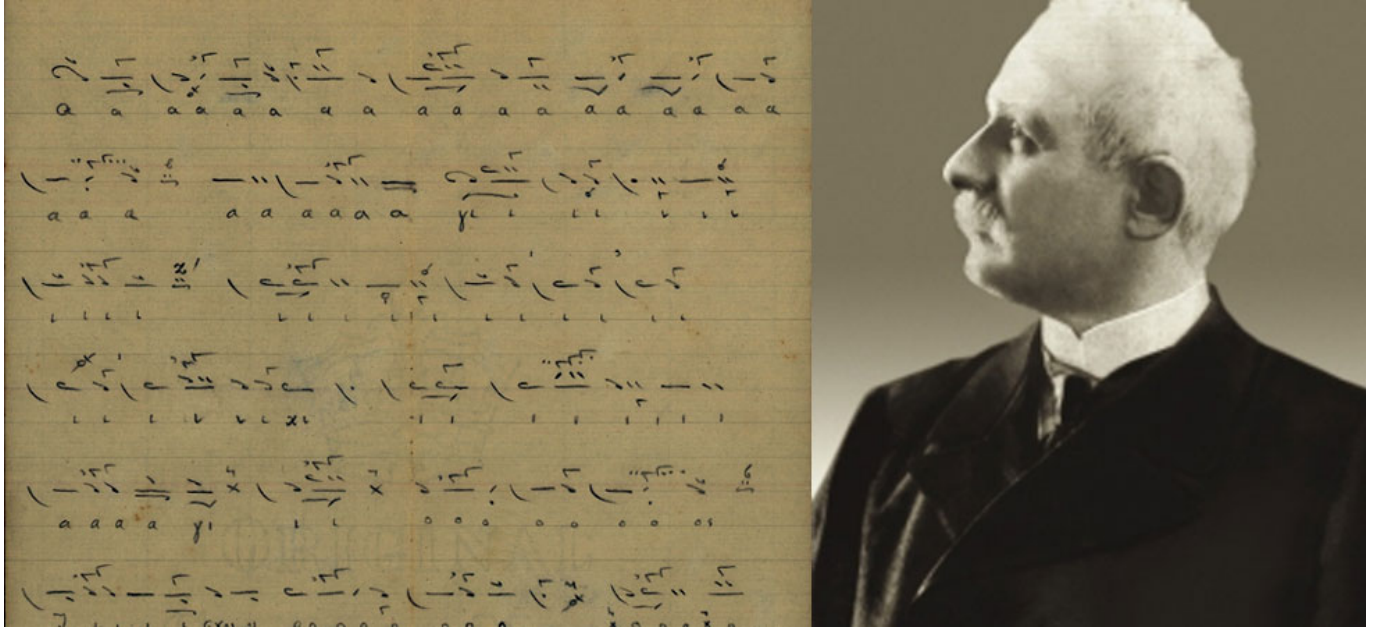 α α α α α α α α α α α α α α α α α α
α α α α α α α α α γι ι ι ι ι ι ι
ι ι ι ι ι ι ι ι ι ι ι ι ι ι ι ι ι
ι ι ι ι ι ι χι ι ι ι ι ι ι ι ι
α α α α γι ι ι ο ο ο ο ο ο ο ος
ORIGINAL